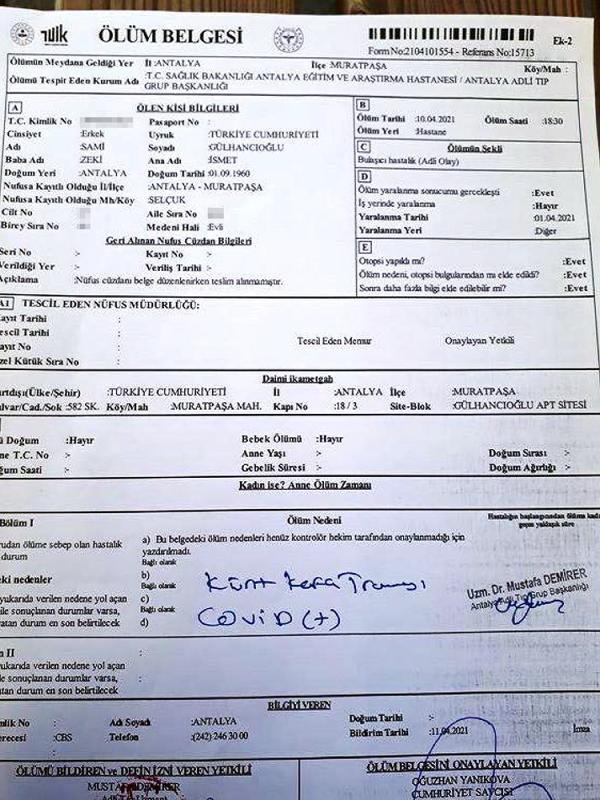 TÜİK ÖLÜM BELGESİ
Form No:2104101554 - Referans No:15713 Ek-2
Ölümün Meydana Geldiği Yer İl :ANTALYA İlçe :MURATPAŞA Köy/Mah :
Ölümü Tespit Eden Kurum Adı :T.C. SAĞLIK BAKANLIĞI ANTALYA EĞİTİM VE ARAŞTIRMA HASTANESİ / ANTALYA ADLİ TIP
GRUP BAŞKANLIĞI
A ÖLEN KİŞİ BİLGİLERİ
T.C. Kimlik No Pasaport No :
Cinsiyet :Erkek Uyruk :TÜRKİYE CUMHURİYETİ
Adı :SAMİ Soyadı :GÜLHANCIOĞLU
Baba Adı :ZEKİ Ana Adı :İSMET
Doğum Yeri :ANTALYA Doğum Tarihi :01.09.1960
Nufusa Kayıtlı Olduğu İl/İlçe :ANTALYA - MURATPAŞA
Nufusa Kayıtlı Olduğu Mh/Köy :SELÇUK
Cilt No : Aile Sıra No :
Birey Sıra No : Medeni Hali :Evli
Geri Alınan Nufus Cüzdan Bilgileri
Seri No :- Kayıt No :-
Verildiği Yer :- Veriliş Tarihi :-
Açıklama :Nüfus cüzdanı belge düzenlenirken teslim alınmamıştır.
B
Ölüm Tarihi :10.04.2021 Ölüm Saati :18:30
Ölüm Yeri :Hastane
C Ölümün Şekli
Bulaşıcı hastalık (Adli Olay)
D
Ölüm yaralanma sonucumu gerçekleşti :Evet
İş yerinde yaralanma :Hayır
Yaralanma Tarihi :01.04.2021
Yaralanma Yeri :Diğer
E
Otopsi yapıldı mı? :Evet
Ölüm nedeni, otopsi bulgularından mı elde edildi? :Evet
Sonra daha fazla bilgi ekle edilebilir mi? :Evet
A1 TESCİL EDEN NÜFUS MÜDÜRLÜĞÜ:
ayıt Tarihi :
escil Tarihi :
ayıt No : Tescil Eden Memur Onaylayan Yetkili
zel Kütük Sıra No :
Daimi ikametgah
urtdışı(Ülke/Şehir) :TÜRKİYE CUMHURİYETİ İl :ANTALYA İlçe :MURATPAŞA
ulvar/Cad./Sok :582 SK. Köy/Mah :MURATPAŞA MAH. Kapı No :18 / 3 Site-Blok :GÜLHANCIOĞLU APT SİTESİ
ü Doğum :Hayır Bebek Ölümü :Hayır
ne T.C. No :- Anne Yaşı :- Doğum Sırası :-
ğum Saati :- Gebelik Süresi :- Doğum Ağırlığı :-
Kadın ise? Anne Ölüm Zamanı
Bölüm I Ölüm Nedeni Hastalığın başlangıcından ölüme kadar
geçen yaklaşık süre
rudan ölüme sebep olan hastalık a) Bu belgedeki ölüm nedenleri henüz kontrolör hekim tarafından onaylanmadığı için
durum yazdırılmadı.
Bağlı olarak
eki nedenler b) Künt kafa Travması
Bağlı olarak
yukarıda verilen nedene yol açan c)
ile sonuçlanan durumlar varsa, Bağlı olarak
atan durum en son belirtilecek d) COVİD (+)
Uzm. Dr. Mustafa DEMİRER
Antalya Adli Tıp Grup Başkanlığı
m II :
yukarıda verilen nedene yol açan
ile sonuçlanan durumlar varsa, :
atan durum en son belirtilecek
BİLGİYİ VEREN
imlik No : Adı Soyadı :ANTALYA Doğum Tarihi :-
erecesi :CBS Telefon :(242) 246 30 00 Bildirim Tarihi :11.04.2021 İmza
ÖLÜMÜ BİLDİREN ve DEFİN İZNİ VEREN YETKİLİ ÖLÜM BELGESİNİ ONAYLAYAN YETKİLİ
MUSTAFA DEMİRER OĞUZHAN YANIKOVA
Adli Tıp Uzmanı CUMHURİYET SAVCISI